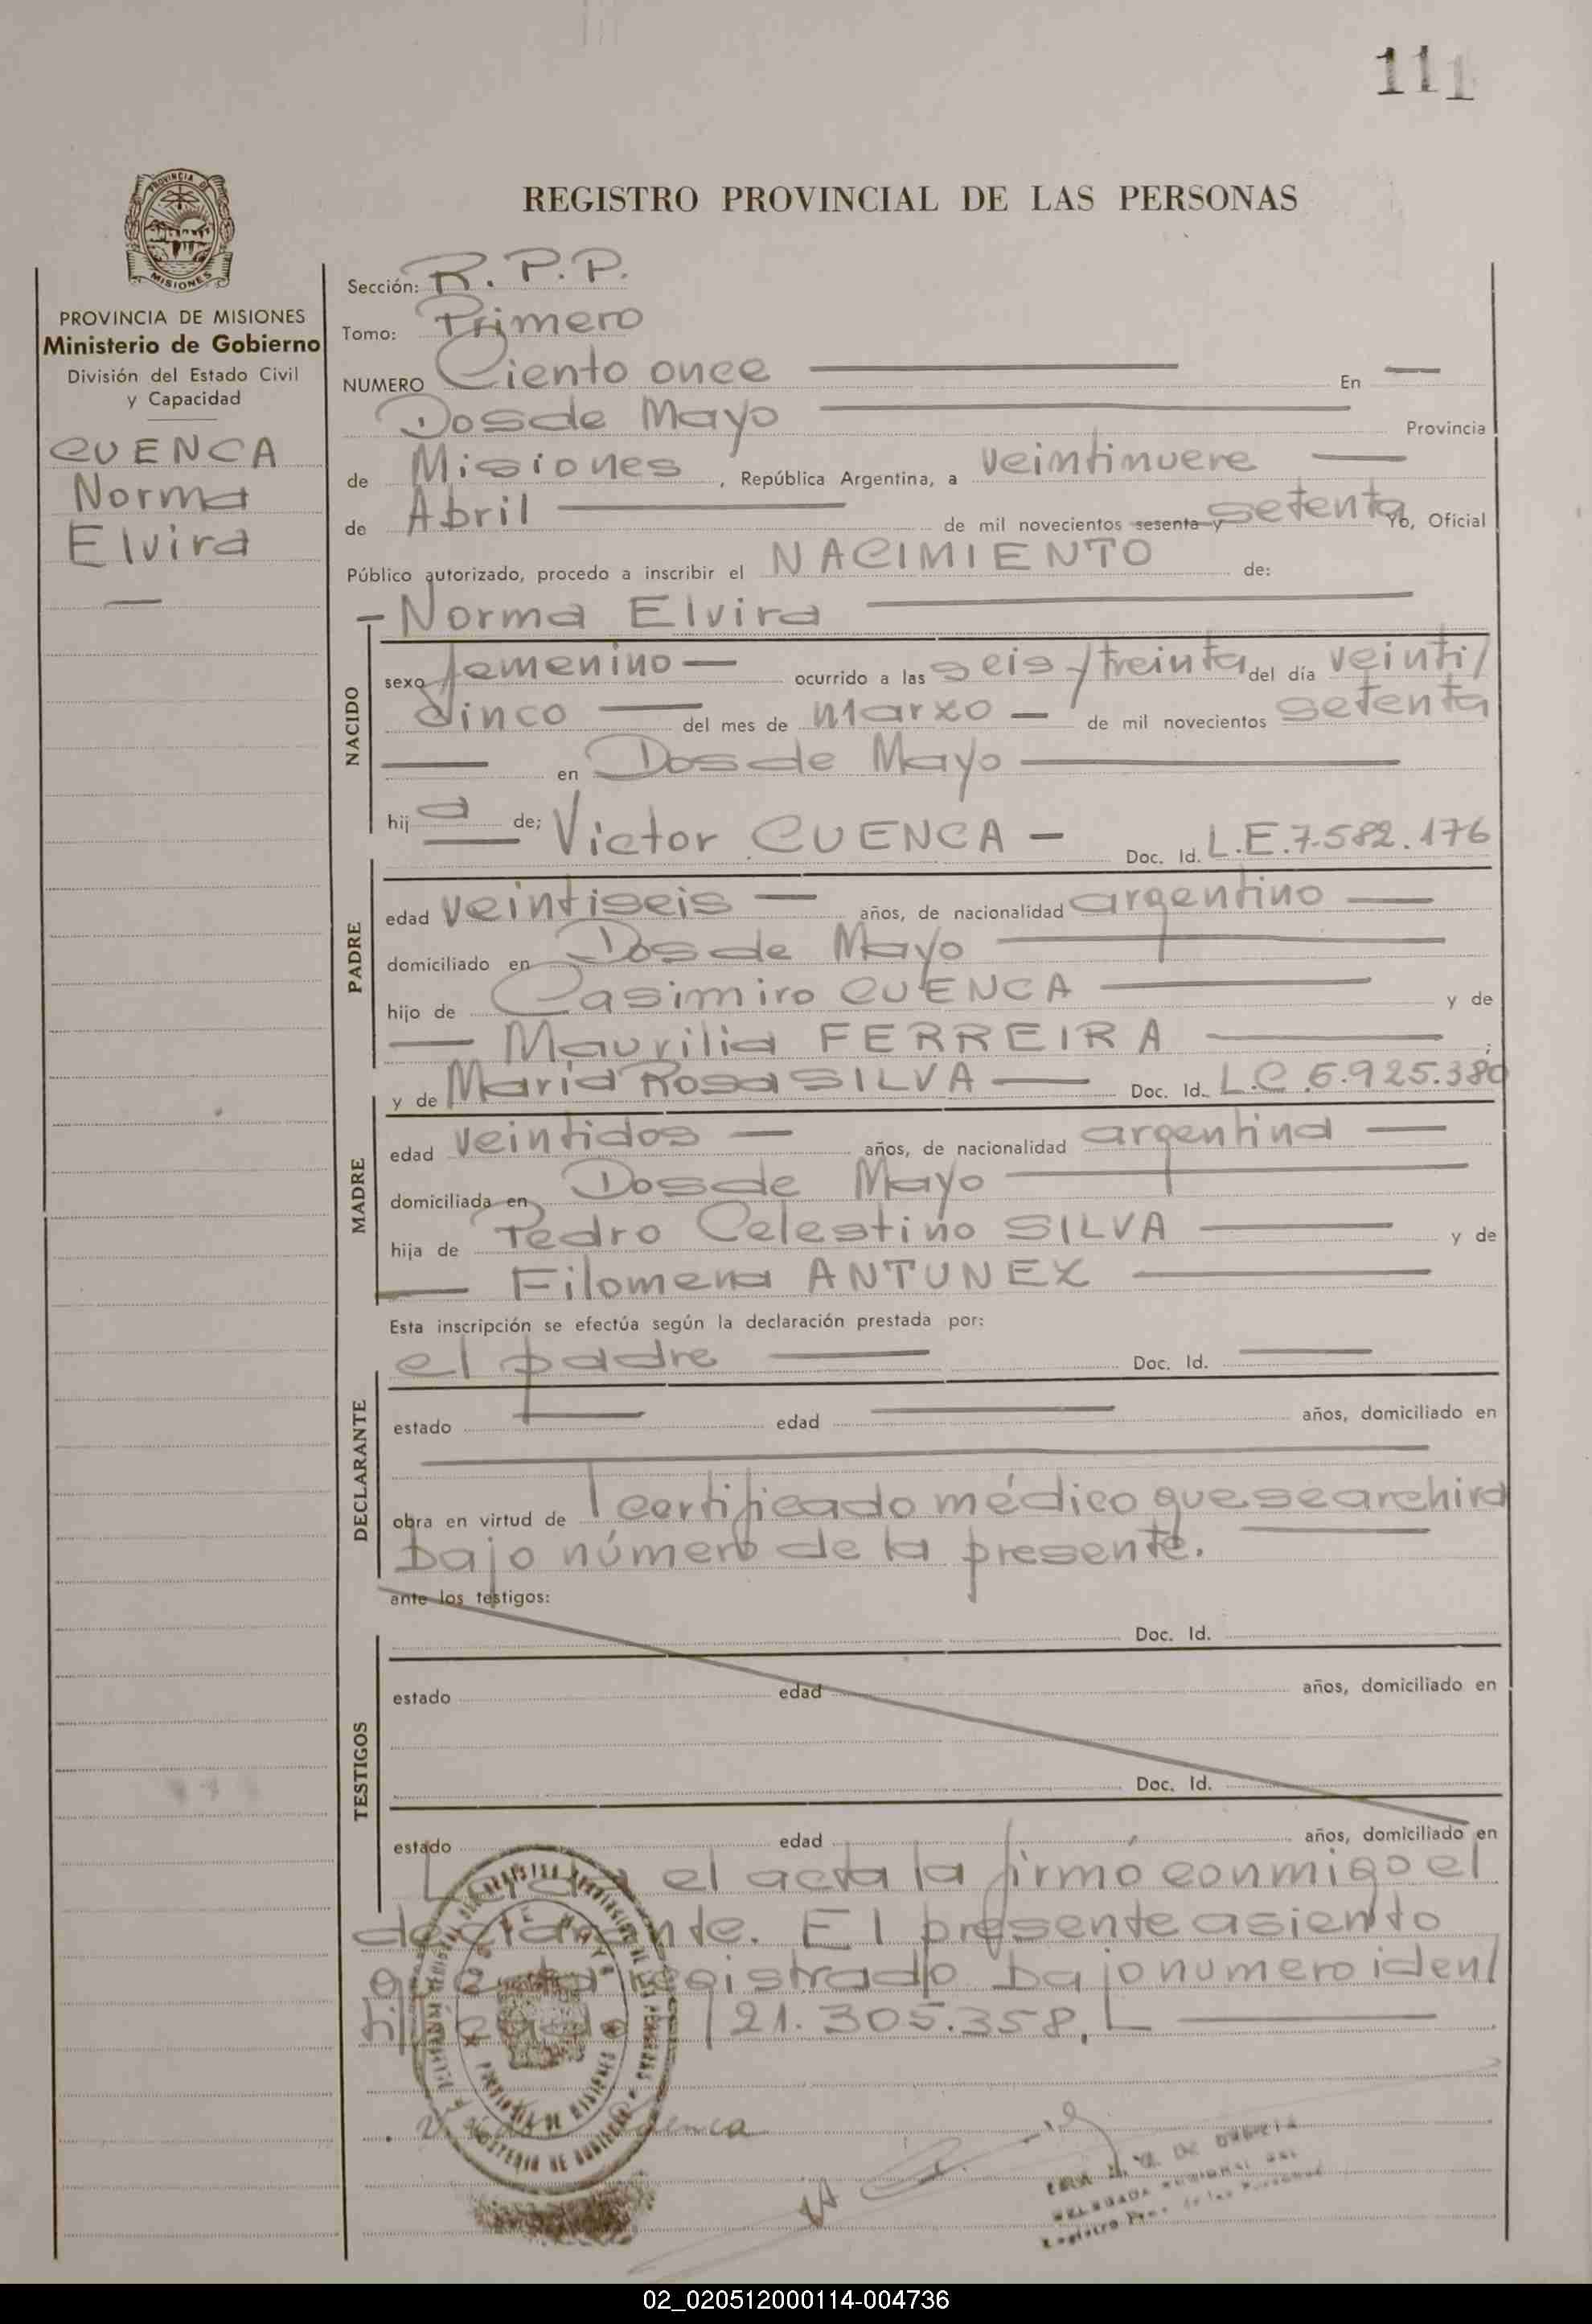 111
PROVINCIA DE
MISIONES
REGISTRO PROVINCIAL DE LAS PERSONAS
PROVINCIA DE MISIONES
Ministerio de Gobierno
División del Estado Civil
y Capacidad
CUENCA
Norma
Elvira
Sección: R. P. P.
Tomo: Primero
NUMERO Ciento once En
Dos de Mayo Provincia
de Misiones, República Argentina, a veintinueve
de Abril de mil novecientos sesenta y setenta Yo, Oficial
Público autorizado, procedo a inscribir el NACIMIENTO de:
Norma Elvira
NACIDO
sexo femenino ocurrido a las seis y treinta del día veinti/
cinco del mes de marzo de mil novecientos setenta
en Dos de Mayo
hija de; Victor CUENCA Doc. Id. L.E. 7.582.176
PADRE
edad veintiseis años, de nacionalidad argentino
domiciliado en Dos de Mayo
hijo de Casimiro CUENCA y de
Maurilia FERREIRA ;
y de Maria Rosa SILVA Doc. Id. L.C. 6.925.380
MADRE
edad veintidos años, de nacionalidad argentina
domiciliada en Dos de Mayo
hija de Pedro Celestino SILVA y de
Filomena ANTUNEX
Esta inscripción se efectúa según la declaración prestada por:
el padre Doc. Id.
DECLARANTE
estado edad años, domiciliado en
obra en virtud de certificado médico que se archiva
bajo número de la presente.
ante los testigos:
Doc. Id.
TESTIGOS
estado edad años, domiciliado en
Doc. Id.
estado edad años, domiciliado en
Leida el acta la firmo conmigo el
declarante. El presente asiento
queda registrado bajo numero iden/
tificado 21.305.358.
Cuenca
02_020512000114-004736